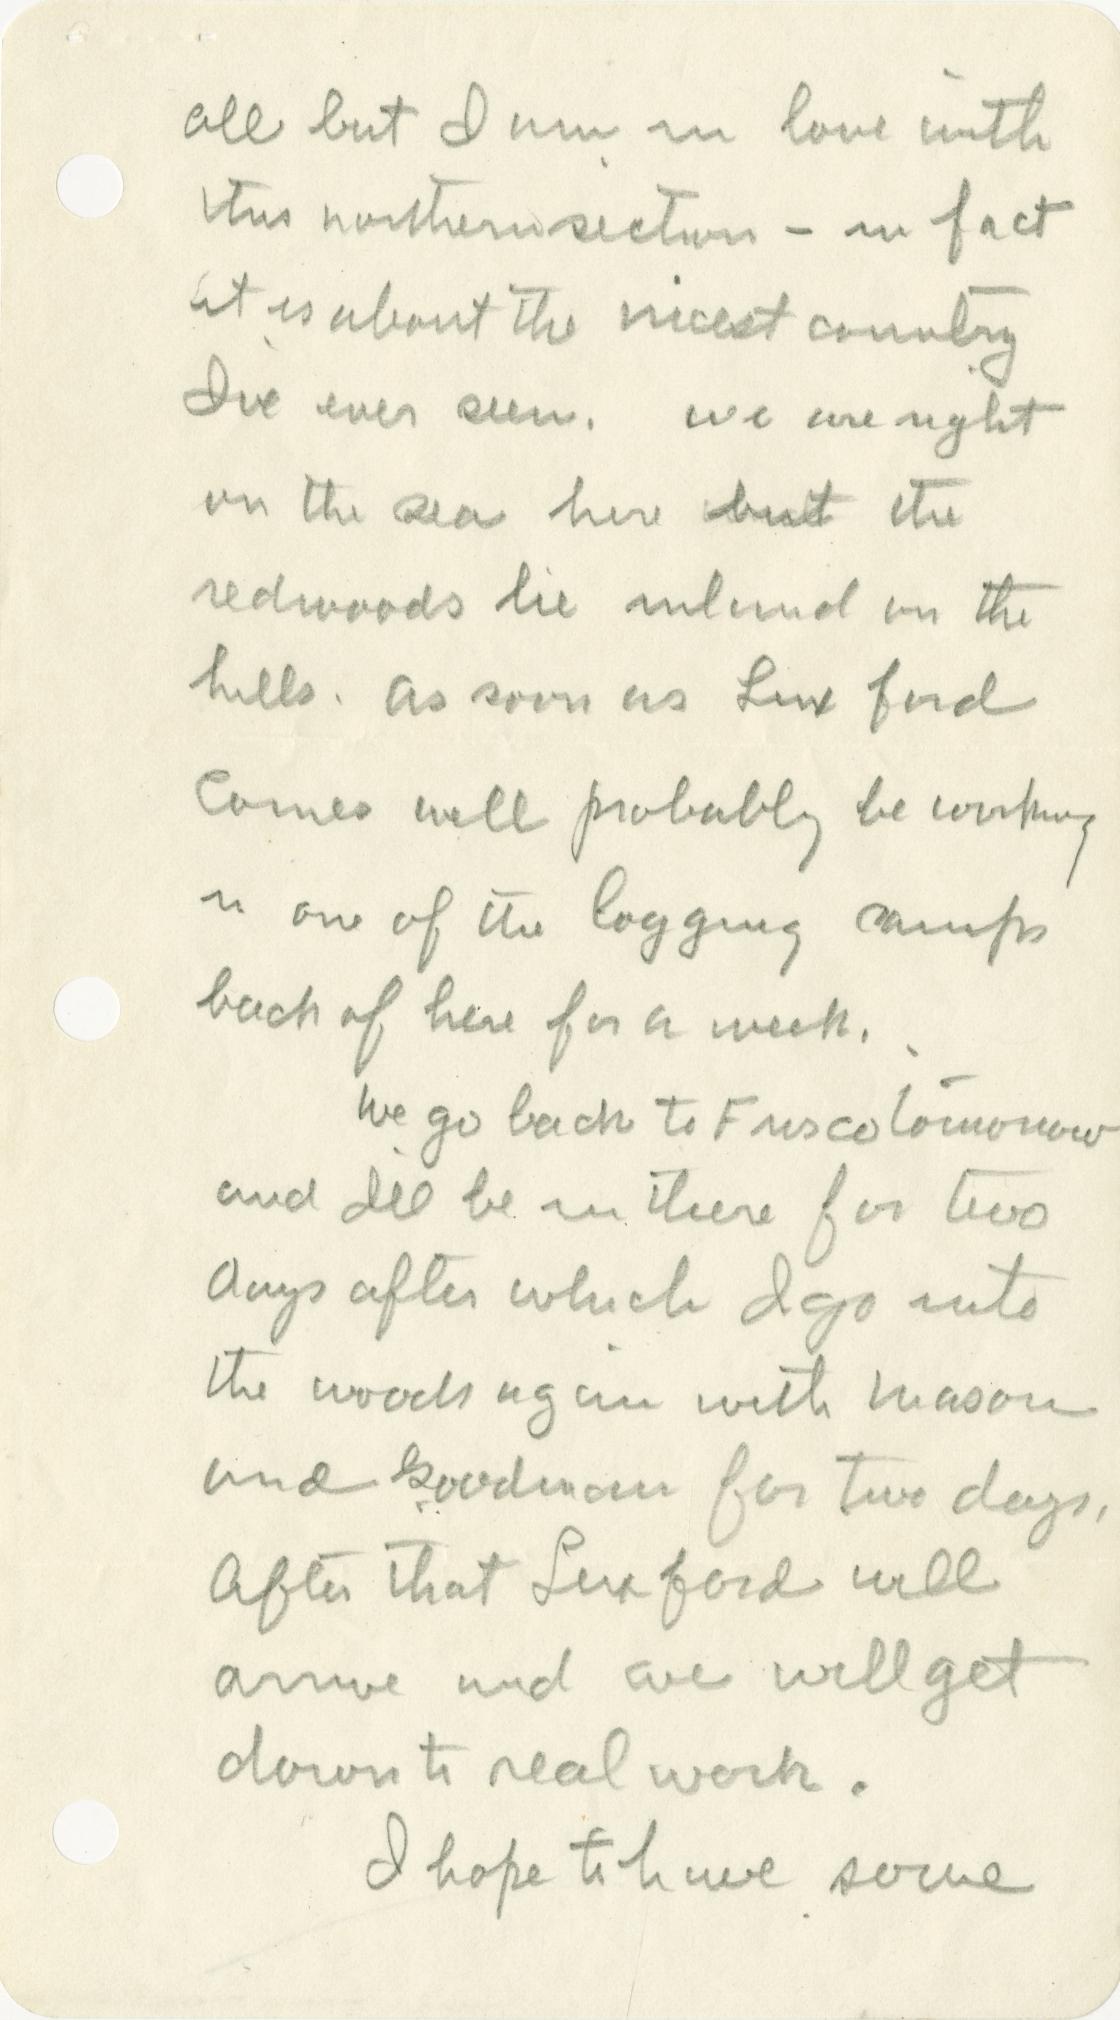 all but I am in love with
this northern section - in fact
it is about the nicest country
I've ever seen. we are right
on the sea here but the
redwoods lie inland on the
hills. As soon as Luxford
Comes will probably be working
in one of the logging camps
back of here for a week.
We go back to Frisco tomorrow
and I'll be in there for two
days after which I go into
the woods again with Mason
and Goodman for two days,
After that Luxford will
arrive and we will get
down to real work.
I hope to have some